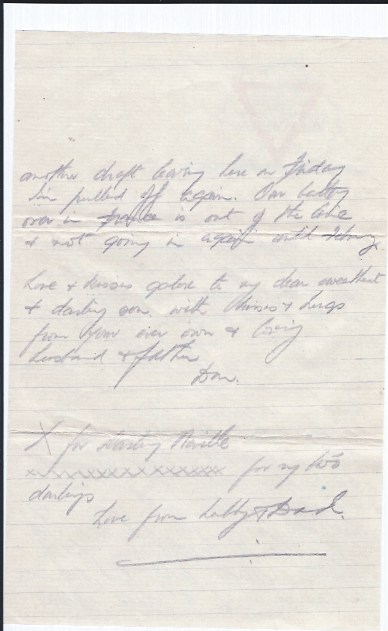 another draft leaving here on Friday
I'm pulled off again. Our batty
over in France is out of the line
& not going in again until
Love & kisses galore to my dear sweetheart
& darling son with kisses & hugs
from your ever own & loving
husband & father
Don.
X for darling Neville
xxxxxxxxxxxxxxxxx for my two
darlings
Love from hubby & Dad.